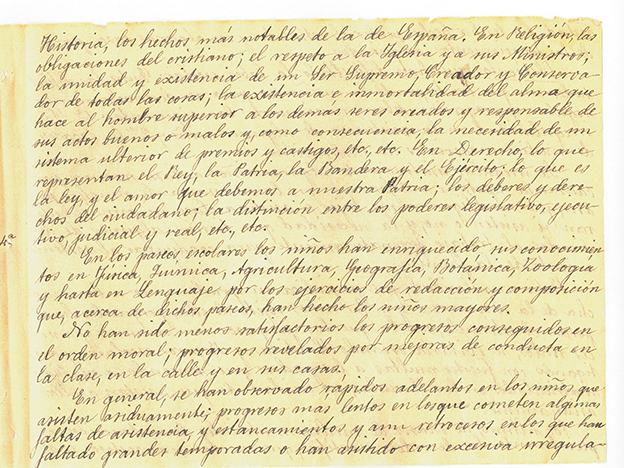 Historia, los hechos más notables de la de España. En Religión, las
obligaciones del cristiano; el respeto a la Iglesia y a sus Ministros;
la unidad y existencia de un Ser Supremo, Creador y Conserva-
dor de todas las cosas; la existencia e inmortalidad del alma que
hace al hombre superior a los demás seres creados y responsable de
sus actos buenos o malos y, como consecuencia, la necesidad de un
sistema ulterior de premios y castigos, etc., etc. En Derecho, lo que
representan el Rey, la Patria, la Bandera y el Ejército; lo que es
la ley, y el amor que debemos a nuestra Patria; los deberes y dere-
chos del ciudadano; la distinción entre los poderes legislativo, ejecu-
tivo, judicial y real, etc., etc.
4ª
En los paseos escolares los niños han enriquecido sus conocimien-
tos en Física, Química, Agricultura, Geografía, Botánica, Zoología
y hasta en Lenguaje por los ejercicios de redacción y composición
que, acerca de dichos paseos, han hecho los niños mayores.
No han sido menos satisfactorios los progresos conseguidos en
el orden moral; progresos revelados por mejoras de conducta en
la clase, en la calle y en sus casas.
En general, se han observado rápidos adelantos en los niños que
asisten asiduamente; progresos mas lentos en los que cometen algunas
faltas de asistencia, y estancamientos y aun retrocesos en los que han
faltado grandes temporadas o han asistido con excesiva irregula-